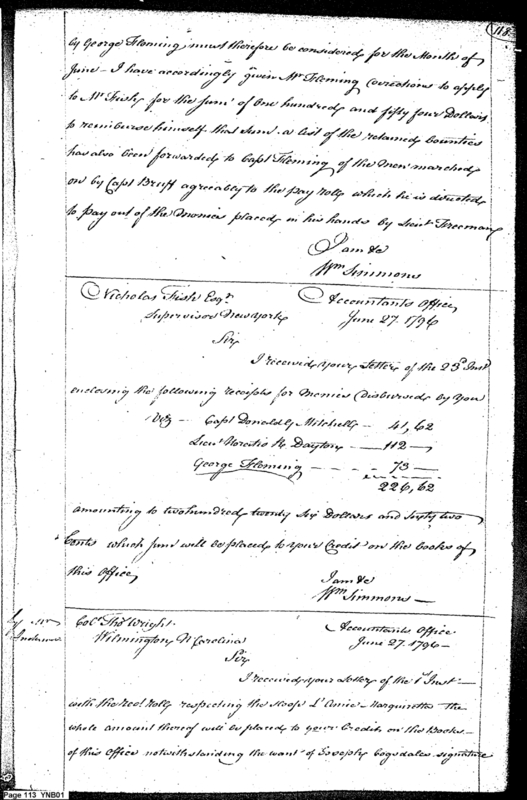 118
by George Fleming, must therefore be considered for the Month of
June – I have accordingly given Mr Fleming directions to apply
to Mr Fish for the sum of One hundred and fifty four Dollars
to reimburse himself that sum. a list of the retained bounties
has also been forwarded to Capt Fleming of the men marched
on by Capt Bruff agreeably to the pay rolls which he is directed
to pay out of the monies placed in his hands by Lieut Freeman
I am &c
Wm Simmons
Nicholas Fish Esqr
Accountants Office
Supervisor New York
June 27. 1796
Sir
I received your letter of the 23d Inst
enclosing the following receipts for monies disbursed by you
Viz – Capt Donald G Mitchell – 41,62
Lieut Horatio R. Dayton – 112 –
George Fleming – – – – 73 –
226,62
amounting to two hundred twenty six Dollars and sixty two
Cents which sum will be placed to your Credit on the books of
this Office
I am &c
Wm Simmons –
Colo Thos Wright
Accountants Office
Wilmington N Carolina
June 27. 1796 –
Sir
I received your letter of the 1st Inst –
with the rolls respecting the Sloop L'Amie Marguerite the
whole amount thereof will be placed to your Credit on the Books –
of this Office notwithstanding the want of Joseph Cogsdales signature
Page 113 YNB01